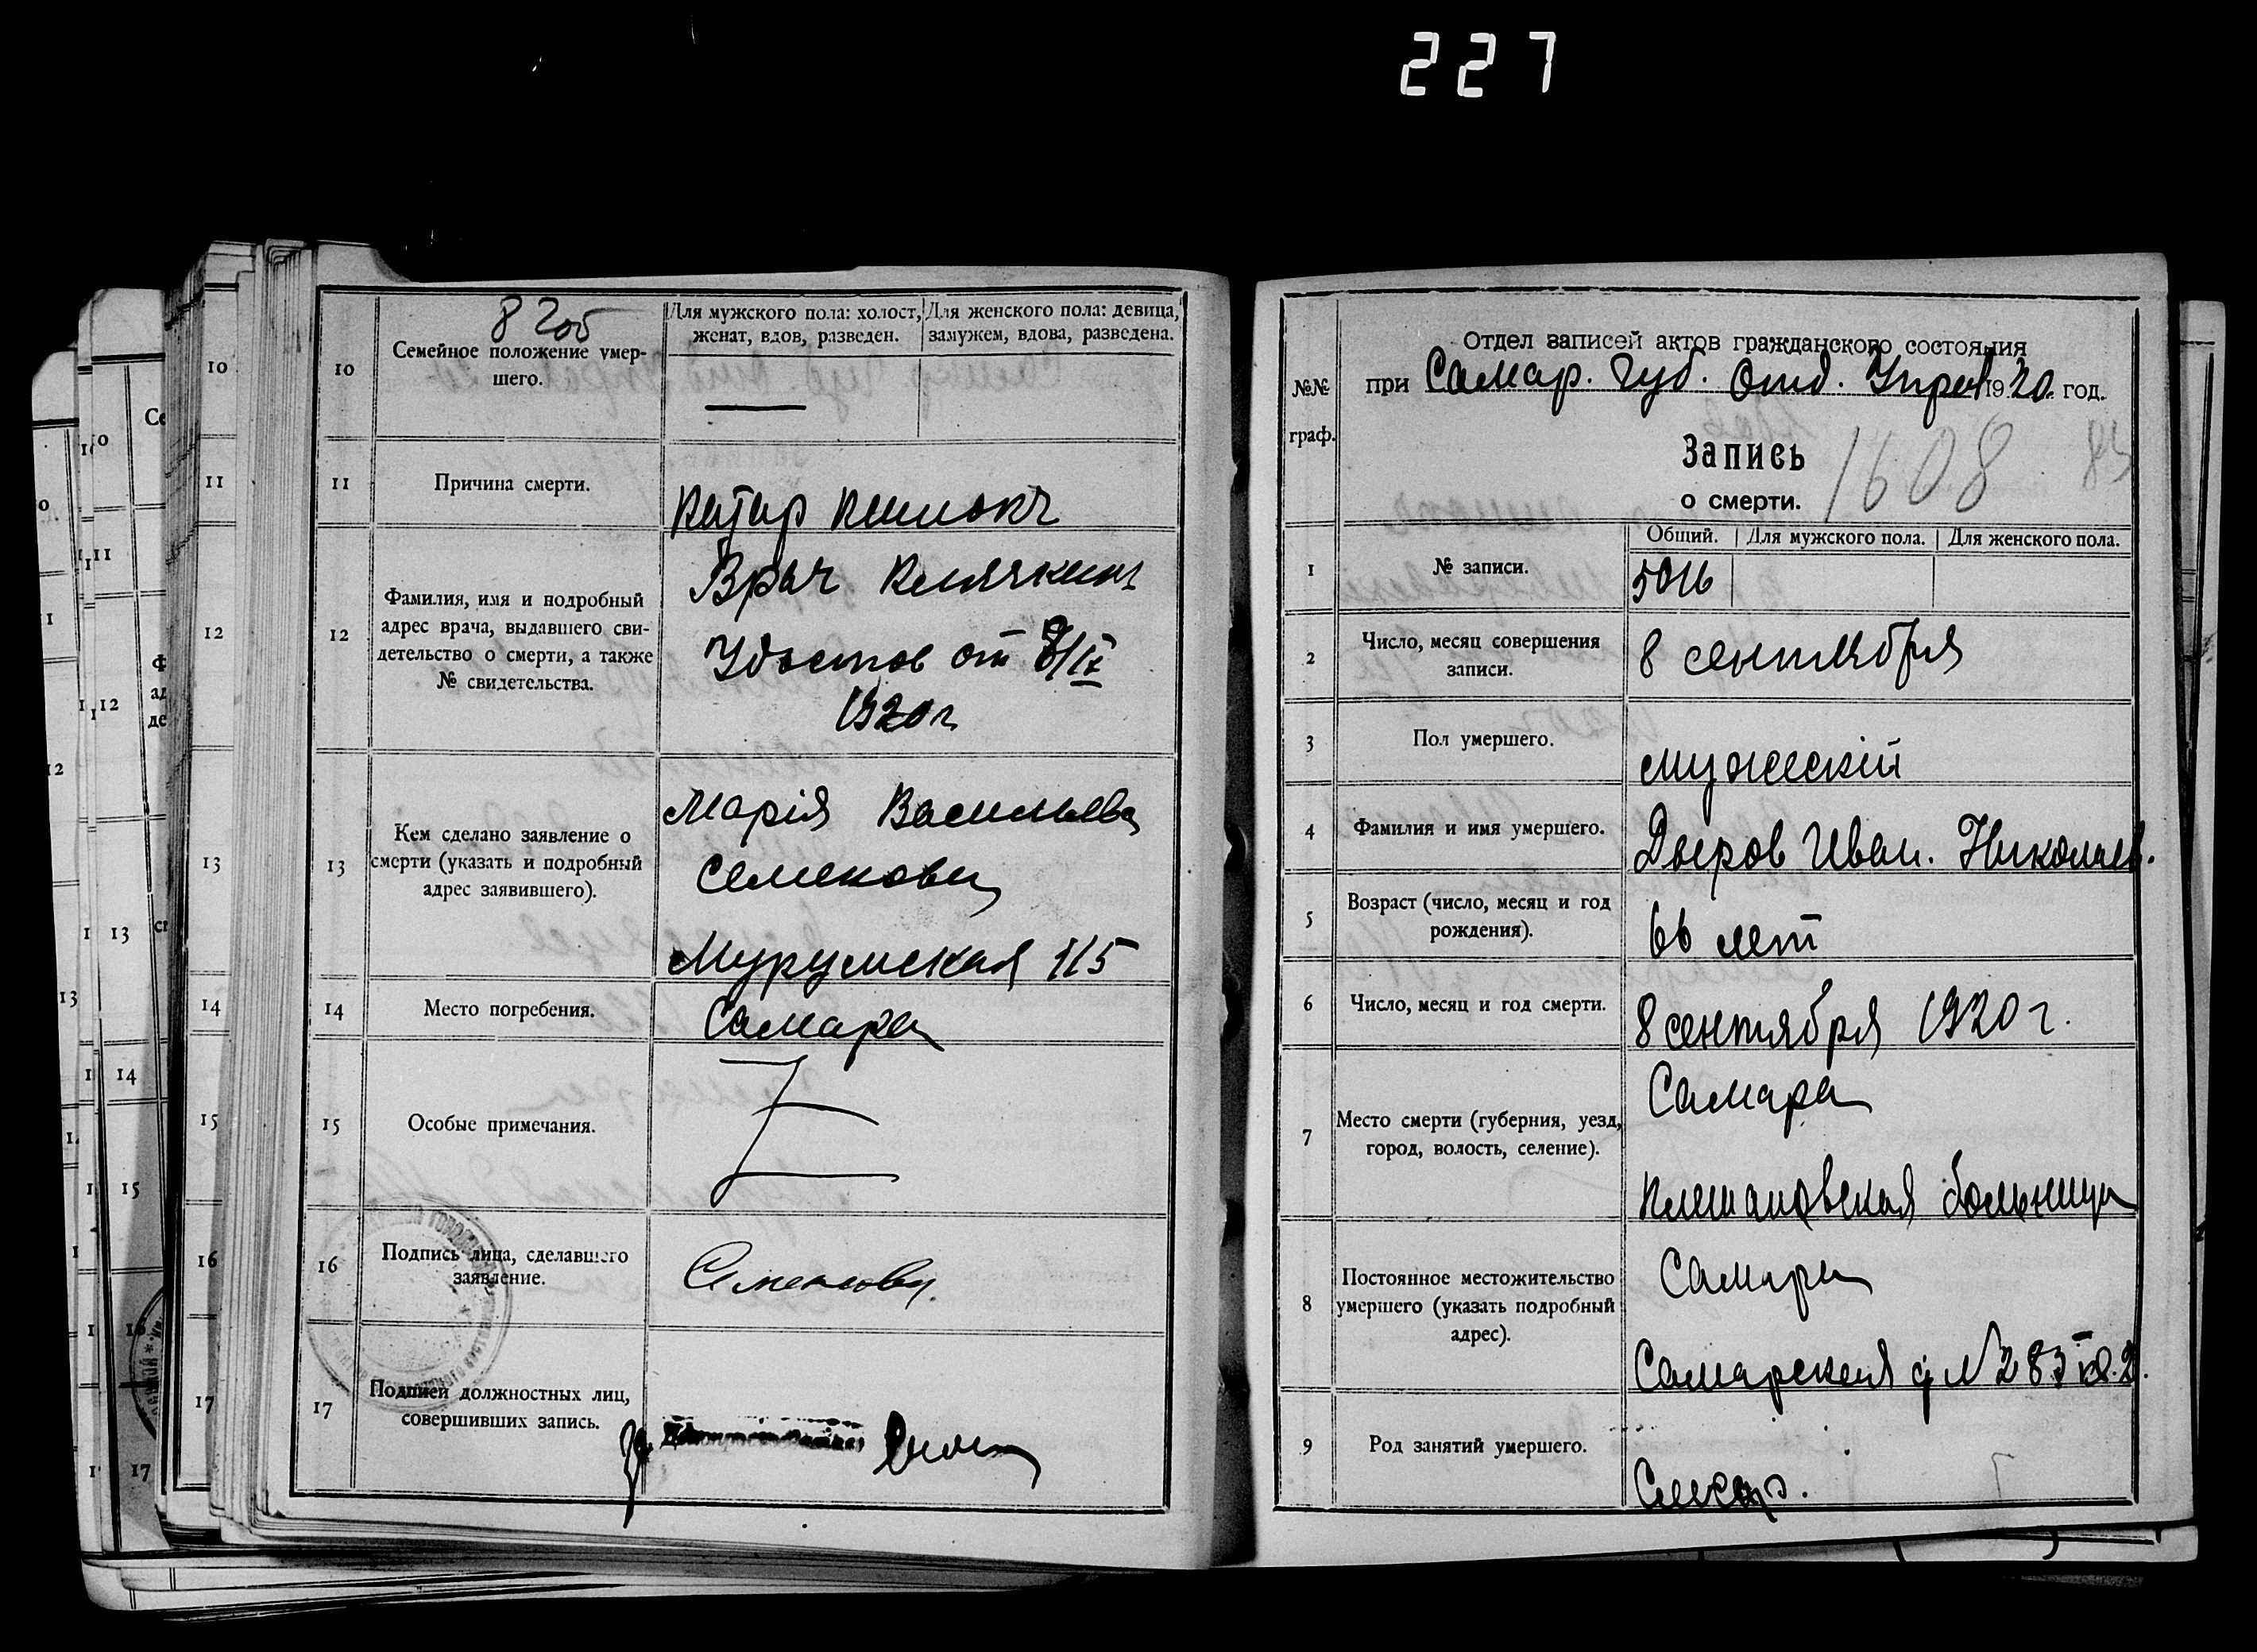 227
8 200
10
Семейное положение умер-
шего.
Для мужского пола: холост,
женат, вдов, разведен.
Для женского пола: девица,
замужем, вдова, разведена.
11
Причина смерти.
Катар кишокъ
12
Фамилия, имя и подробный
адрес врача, выдавшего сви-
детельство о смерти, а также
№ свидетельства.
Врач Клячкинъ
Удостов от 8/IX
1920 г
13
Кем сделано заявление о
смерти (указать и подробный
адрес заявившего).
Марія Васильева
Семенова
Мурумская 115
14
Место погребения.
Самара
15
Особые примечания.
16
Подпись лица, сделавшего
заявление.
Семенова.
17
Подписи должностных лиц,
совершивших запись.
За
№№
граф.
Отдел записей актов гражданского состояния
при Самар. Губ. Отд. Управ 1920 год.
Запись
о смерти.
1608
83
1
№ записи.
Общий. Для мужского пола. Для женского пола.
5016
2
Число, месяц совершения
записи.
8 сентября
3
Пол умершего.
мужескій
4
Фамилия и имя умершего.
Иван. Николаев.
5
Возраст (число, месяц и год
рождения).
66 лет
6
Число, месяц и год смерти.
8 сентября 1920 г.
7
Место смерти (губерния, уезд,
город, волость, селение).
Самара
Плешановская больница
8
Постоянное местожительство
умершего (указать подробный
адрес).
Самара
Самарская д № 283 кв. 2.
9
Род занятий умершего.
10
11
12
13
14
15
16
17